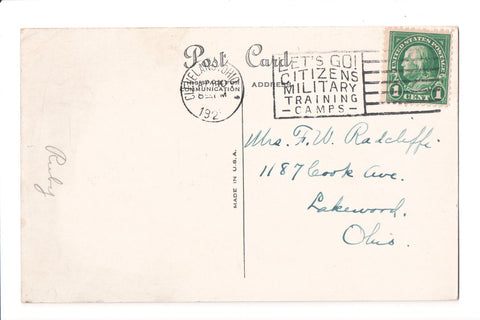 Post Card
ADDRESS
CLEVELAND, OHIO
192
LET'S GO!
CITIZENS
MILITARY
TRAINING
- CAMPS -
UNITED STATES POSTAGE
1 CENT 1
Mrs. F. W. Radcliffe.
1187 Cook Ave.
Lakewood.
Ohio.
Ruby
MADE IN U.S.A.